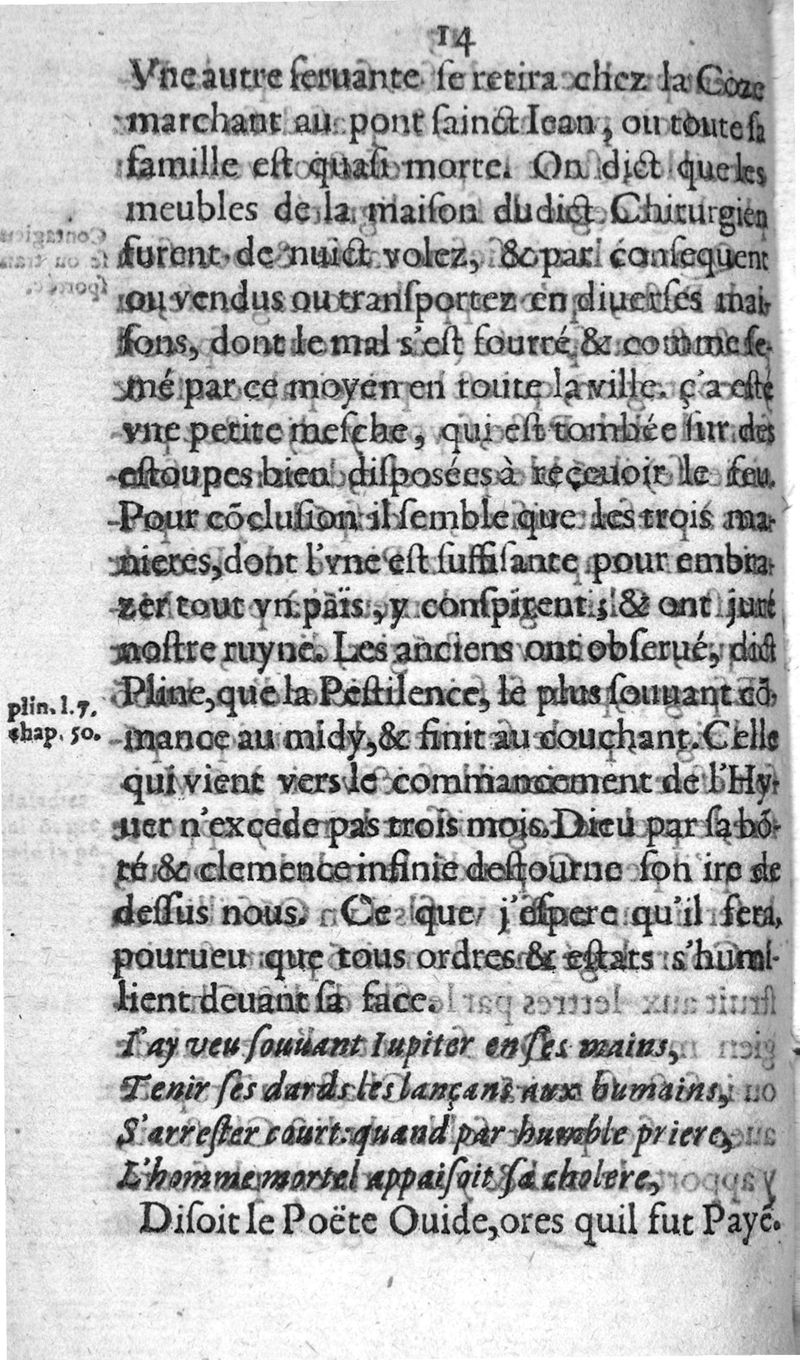 14
Vne autre ſeruante ſe retira chez la Coze
marchant au pont ſainct Iean, ou toute ſa
famille eſt quaſi morte. On dict que les
meubles de la maiſon dudict Chirurgien
furent de nuict volez, & par conſequent
ou vendus ou tranſportez en diuerſes mai-
ſons, dont le mal s'eſt fourré & comme ſe-
mé par ce moyen en toute la ville. ç'a eſté
vne petite meſche, qui eſt tombée ſur des
eſtoupes bien diſposées à reçeuoir le feu.
Pour cõcluſion il ſemble que les trois ma-
nieres, dont l'vne eſt ſuffiſante pour embra-
zer tout vn païs, y conſpirent; & ont juré
noſtre ruyne. Les anciens ont obſerué, dict
plin. l. 7.
chap. 50.
Pline, que la Peſtilence, le plus ſouuant cõ-
mance au midy, & finit au couchant. Celle
qui vient vers le commancement de l'Hy-
uer n'excede pas trois mois. Dieu par ſa bõ-
té & clemence infinie deſtourne ſon ire de
deſſus nous. Ce que j'eſpere qu'il fera,
pourueu que tous ordres & eſtats s'humi-
lient deuant ſa face.
I'ay veu ſouuant Iupiter en ſes mains,
Tenir ſes dards les lançant aux humains,
S'arreſter court: quand par humble priere,
L'homme mortel appaiſoit ſa cholere,
Diſoit le Poëte Ouide, ores quil fut Payẽ.